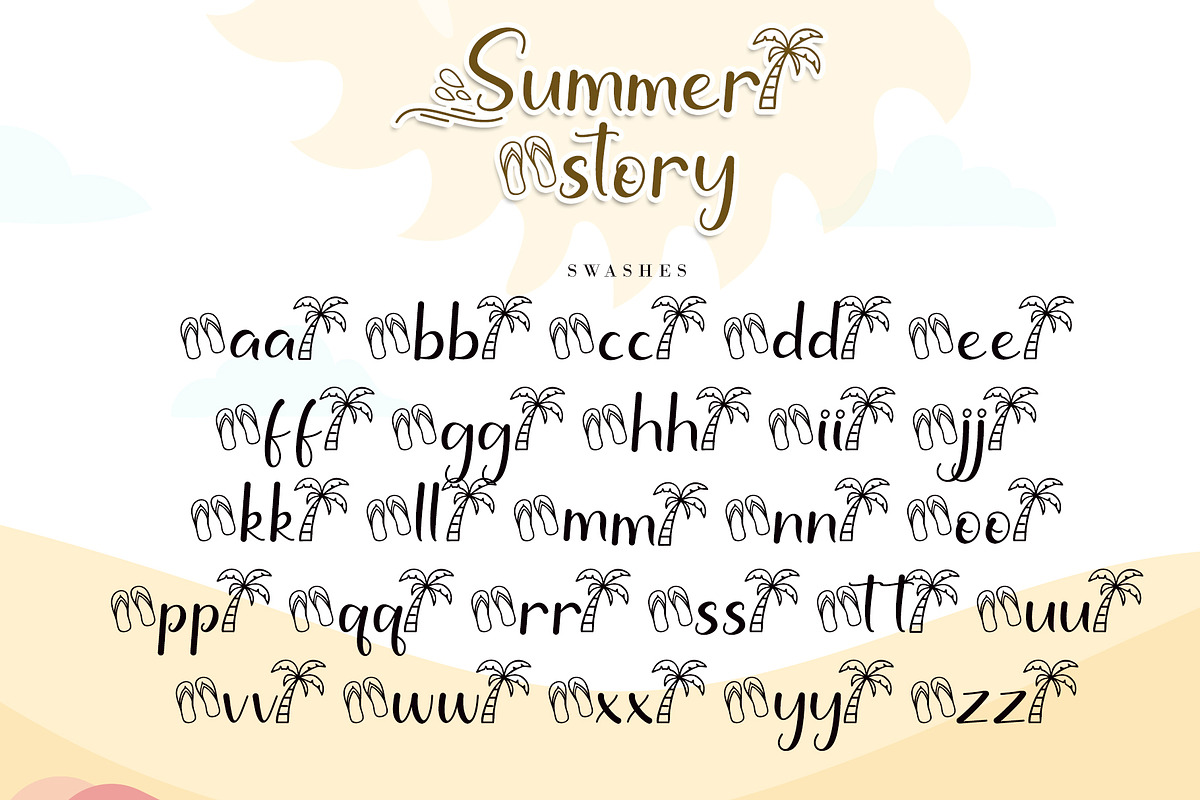 Summer
story
SWASHES
aa bb cc dd ee
ff gg hh ii jj
kk ll mm nn oo
pp qq rr ss tt uu
vv ww xx yy zz